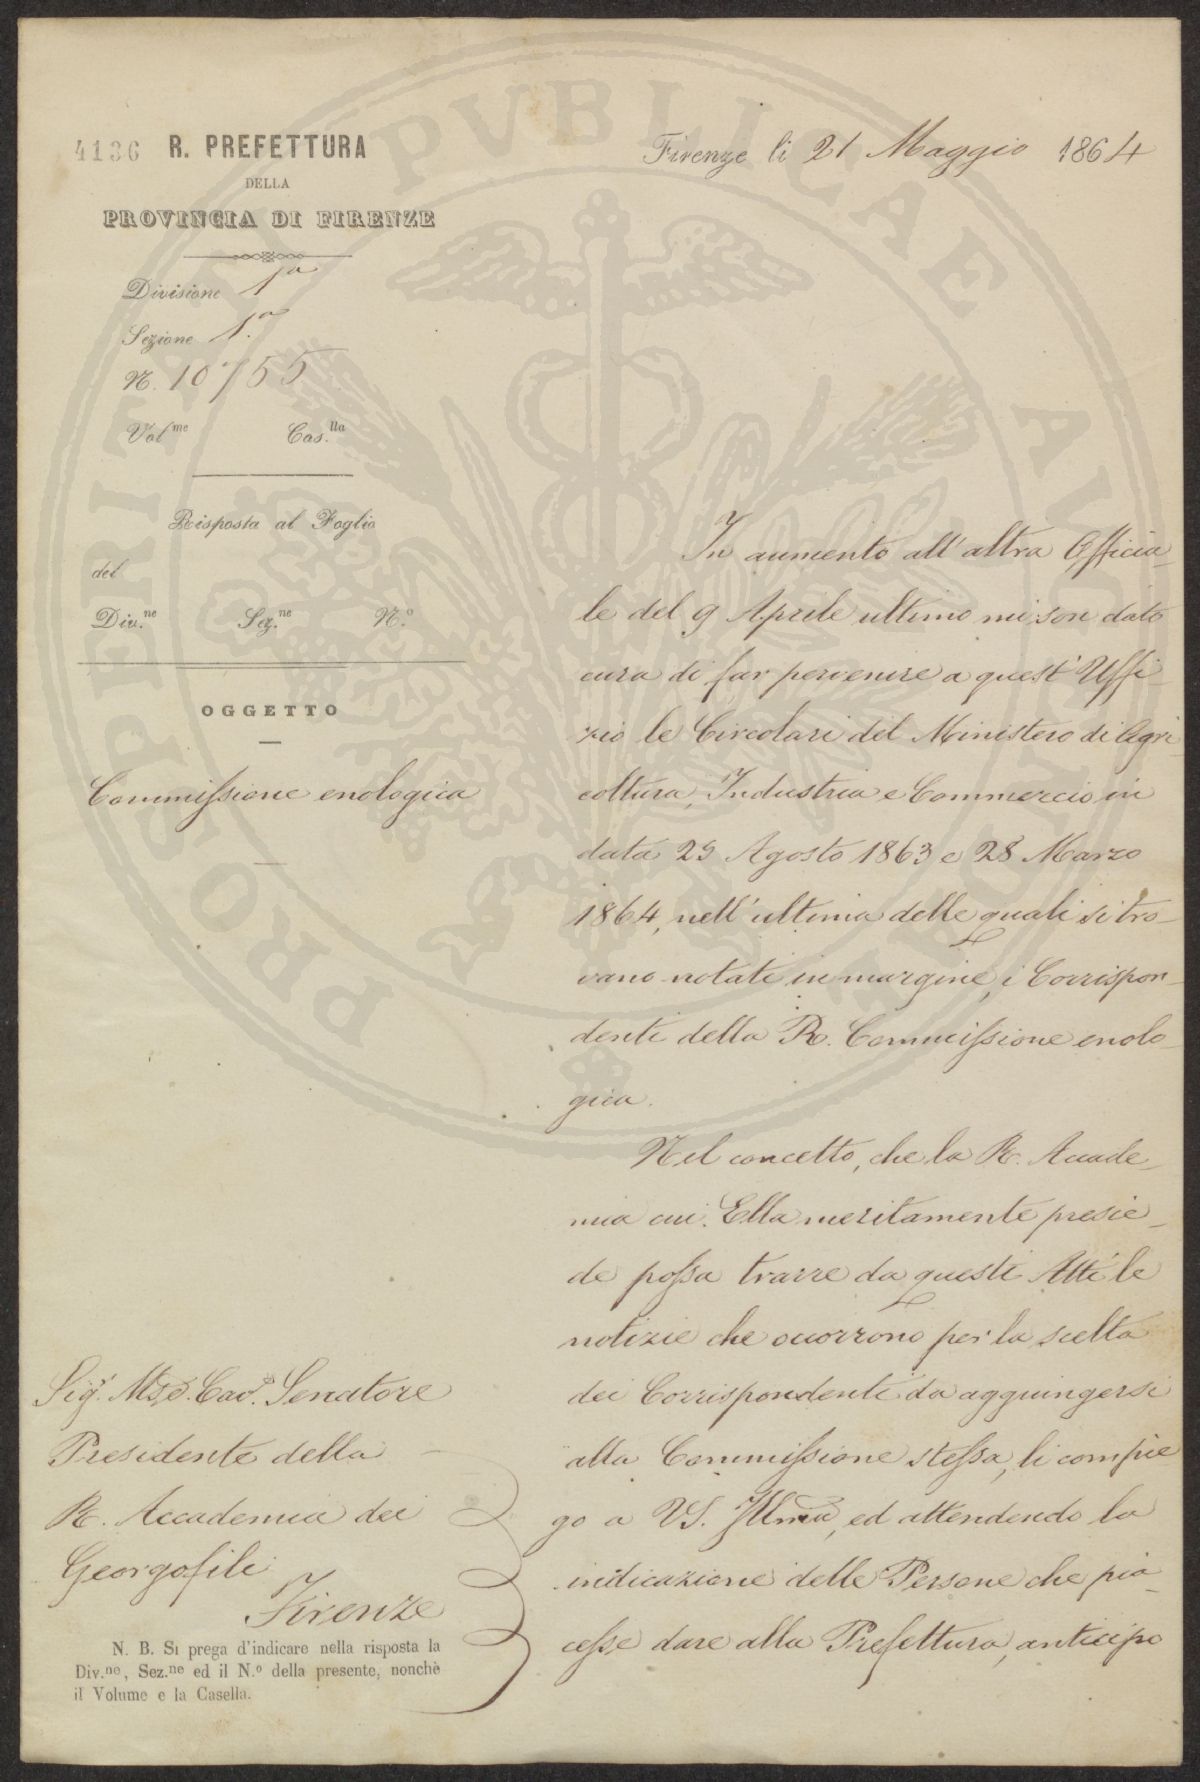 4136 R. PREFETTURA
DELLA
PROVINCIA DI FIRENZE
Firenze li 21 Maggio 1864
Divisione 1ª
Sezione 1.ª
N. 10755
Vol.me Cas.lla
Risposta al Foglio
del
Div.ne Sez.ne N.º
OGGETTO
Commissione enologica
In aumento all'altra Officia-
le del 9 Aprile ultimo mi son dato
cura di far pervenire a quest'Uffi-
zio le Circolari del Ministero di Agri-
coltura, Industria e Commercio in
data 29 Agosto 1863 e 28 Marzo
1864, nell'ultima delle quali si tro-
vano notati in margine, i Corrispon-
denti della R. Commissione enolo-
gica.
Nel concetto, che la R. Accade-
mia cui Ella meritamente presie-
de possa trarre da questi Atti le
notizie che occorrono per la scelta
dei Corrispondenti da aggiungersi
alla Commissione stessa, li compie-
go a VS. Illma, ed attendendo la
indicazione delle Persone che pia-
cesse dare alla Prefettura, anticipo
Sig.r Mse. Cav.e Senatore
Presidente della
R. Accademia dei
Georgofili
Firenze
N. B. Si prega d'indicare nella risposta la
Div.ne, Sez.ne ed il N.º della presente, nonchè
il Volume e la Casella.
PROSPERITATI PVBLICAE AVGENDAE